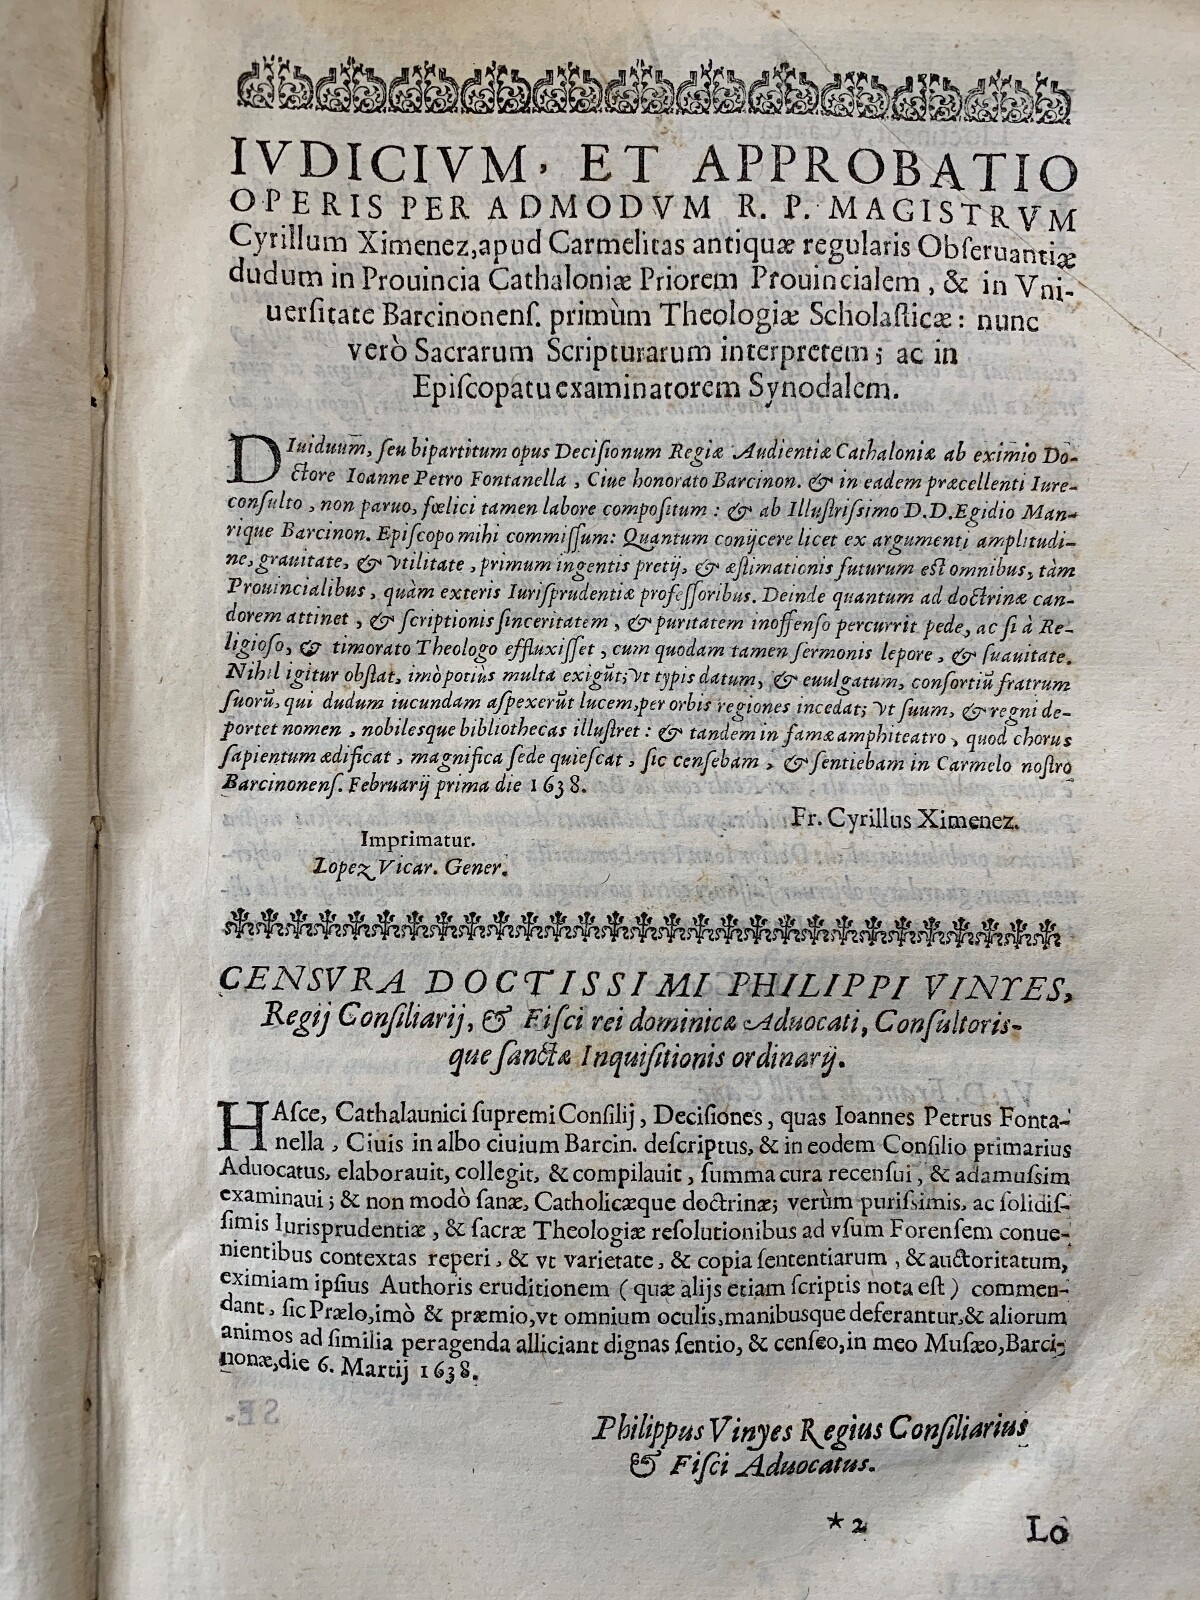 IVDICIVM, ET APPROBATIO
OPERIS PER ADMODVM R. P. MAGISTRVM
Cyrillum Ximenez, apud Carmelitas antiquæ regularis Obſeruantiæ
dudum in Prouincia Cathaloniæ Priorem Prouincialem, & in Vni-
uerſitate Barcinonenſ. primùm Theologiæ Scholaſticæ: nunc
verò Sacrarum Scripturarum interpretem; ac in
Epiſcopatu examinatorem Synodalem.
DIuiduum̄, ſeu bipartitum opus Deciſionum Regiæ Audientiæ Cathaloniæ ab eximio Do-
ctore Ioanne Petro Fontanella, Ciue honorato Barcinon. & in eadem præcellenti Iure-
conſulto, non paruo, fœlici tamen labore compoſitum: & ab Illuſtriſsimo D.D. Egidio Man-
rique Barcinon. Epiſcopo mihi commiſſum: Quantum conijcere licet ex argumenti amplitudi-
ne, grauitate, & vtilitate, primum ingentis pretij, & æſtimationis futurum est omnibus, tàm
Prouincialibus, quàm exteris Iuriſprudentiæ profeſſoribus. Deinde quantum ad doctrinæ can-
dorem attinet, & ſcriptionis ſinceritatem, & puritatem inoffenſo percurrit pede, ac ſi à Re-
ligioſo, & timorato Theologo effluxiſſet, cum quodam tamen ſermonis lepore, & ſuauitate.
Nihil igitur obſtat, imò potiùs multa exigūt; vt typis datum, & euulgatum, conſortiū fratrum
ſuorū, qui dudum iucundam aſpexerūt lucem, per orbis regiones incedat; vt ſuum, & regni de-
portet nomen, nobilesque bibliothecas illuſtret: & tandem in famæ amphiteatro, quod chorus
ſapientum ædificat, magnifica ſede quieſcat, ſic cenſebam, & ſentiebam in Carmelo noſtro
Barcinonenſ. Februarij prima die 1638.
Fr. Cyrillus Ximenez.
Imprimatur.
Lopez Vicar. Gener.
CENSVRA DOCTISSIMI PHILIPPI VINYES,
Regij Conſiliarij, & Fiſci rei dominicæ Aduocati, Conſultoris-
que ſanctæ Inquiſitionis ordinarij.
HAſce, Cathalaunici ſupremi Conſilij, Deciſiones, quas Ioannes Petrus Fonta-
nella, Ciuis in albo ciuium Barcin. deſcriptus, & in eodem Conſilio primarius
Aduocatus, elaborauit, collegit, & compilauit, ſumma cura recenſui, & adamuſsim
examinaui; & non modò ſanæ, Catholicæque doctrinæ; verùm puriſsimis, ac ſolidiſ-
ſimis Iurisprudentiæ, & ſacræ Theologiæ reſolutionibus ad vſum Forenſem conue-
nientibus contextas reperi, & vt varietate, & copia ſententiarum, & auctoritatum,
eximiam ipſius Authoris eruditionem (quæ alijs etiam ſcriptis nota eſt) commen-
dant, ſic Prælo, imò & præmio, vt omnium oculis, manibusque deferantur, & aliorum
animos ad ſimilia peragenda alliciant dignas ſentio, & cenſeo, in meo Muſæo, Barci-
nonæ, die 6. Martij 1638.
Philippus Vinyes Regius Conſiliarius
& Fiſci Aduocatus.
* 2 Lo